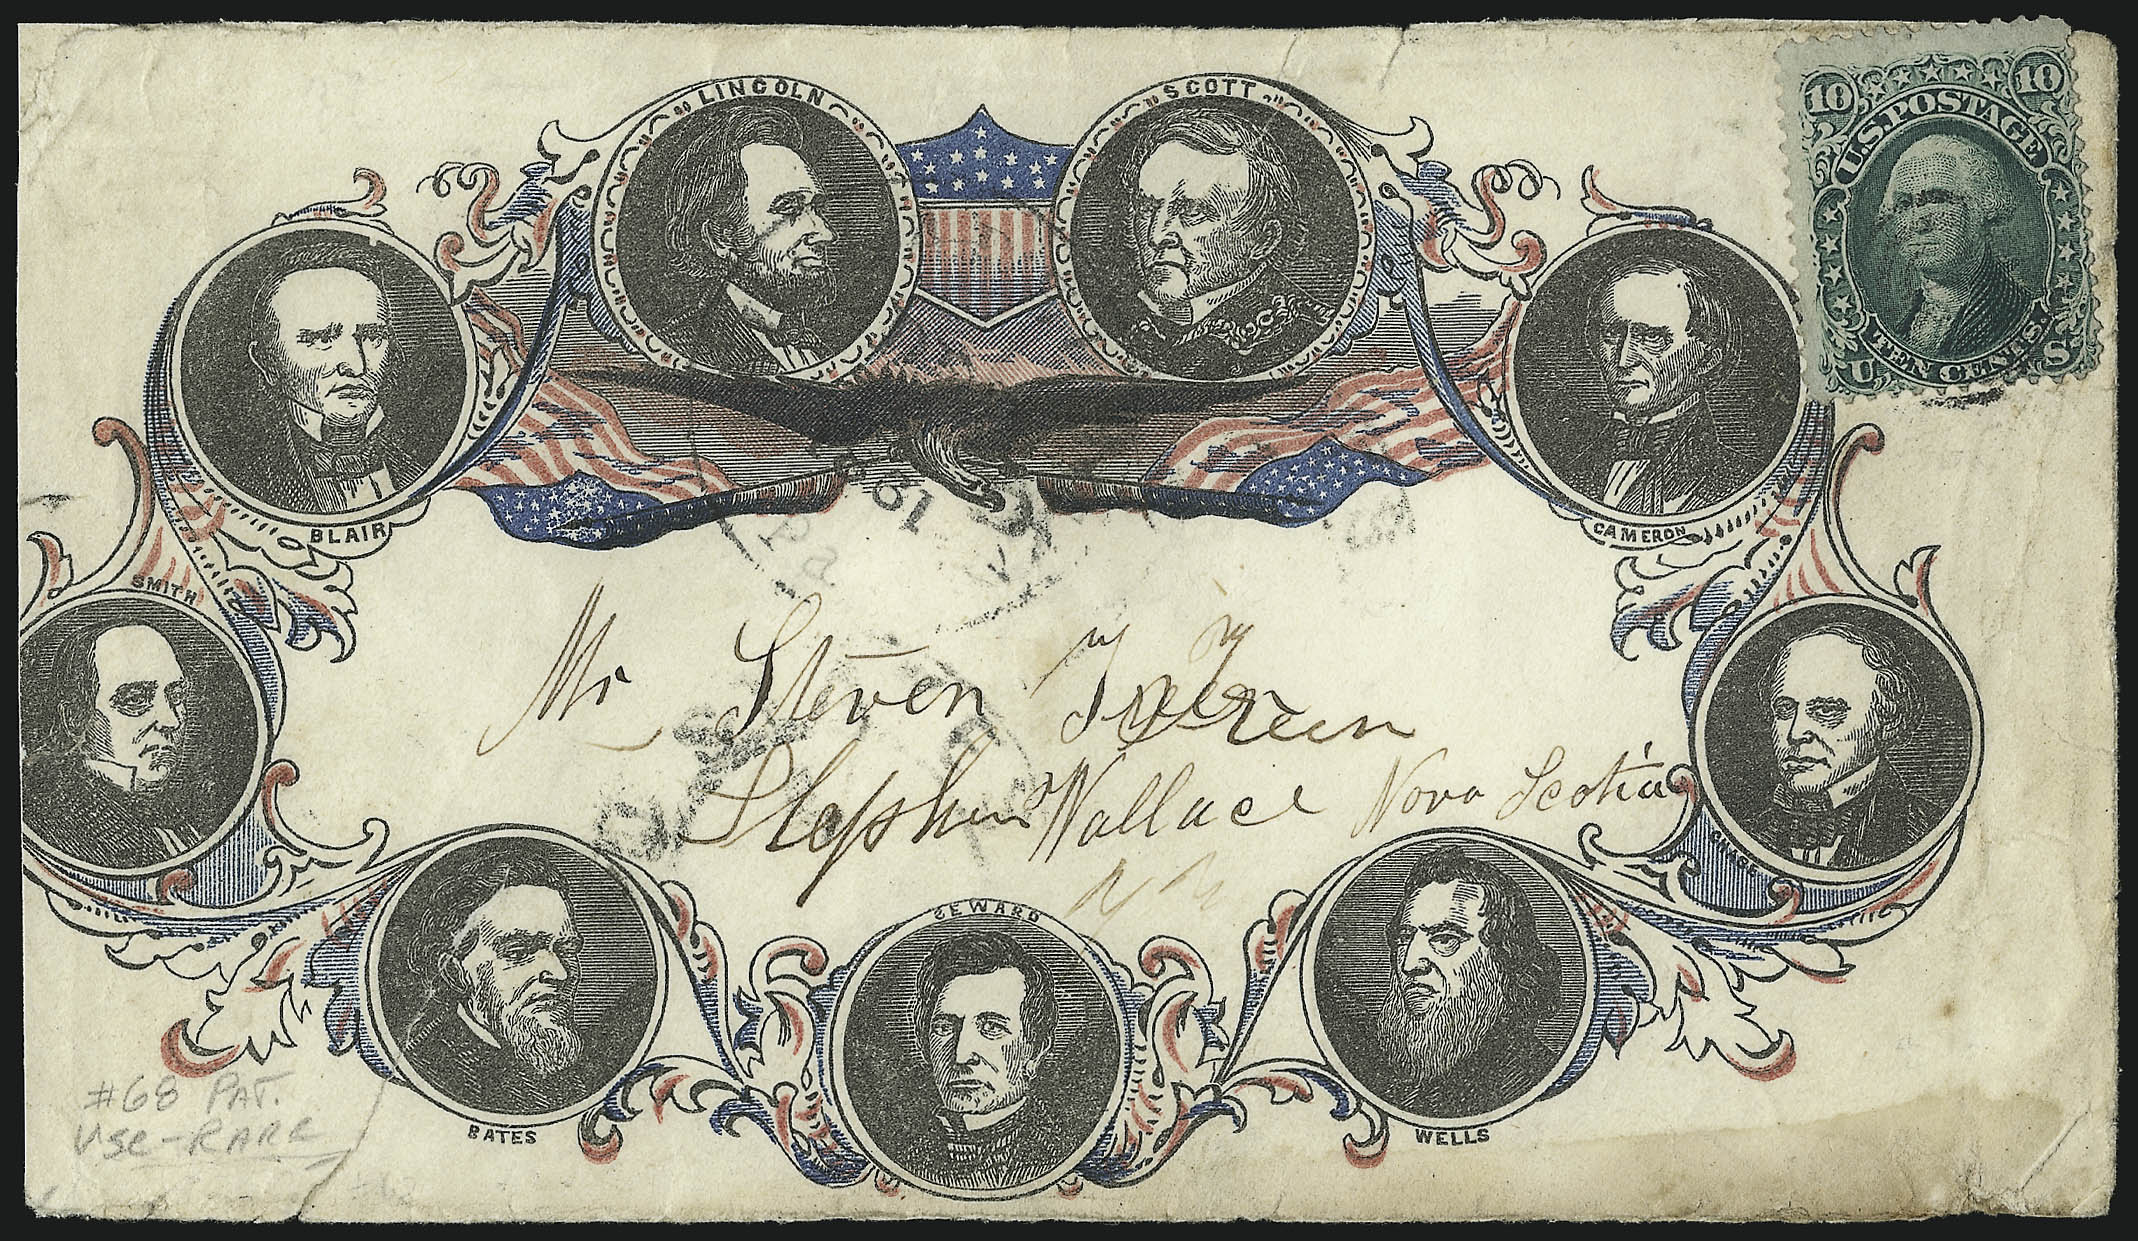 LINCOLN
SCOTT
10 10
U.S. POSTAGE
TEN CENTS.
U S
BLAIR
CAMERON
SMITH
61
Mr Steven Green
Stephen Wallace Nova Scotia
CHASE
SEWARD
BATES
WELLS
#68 PAT.
USE - RARE